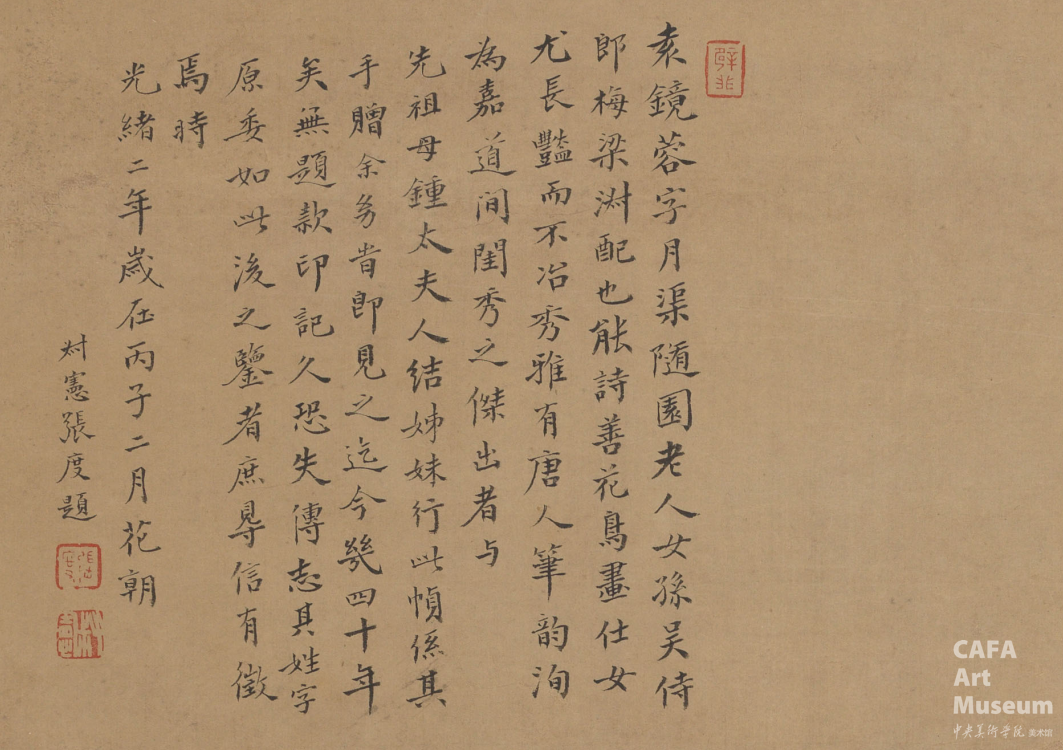 袁鏡蓉字月渠隨園老人女孫吴侍
郎梅梁澍配也能詩善花鳥畫仕女
尤長豔而不冶秀雅有唐人筆韵洵
為嘉道间閨秀之傑出者与
先祖母鍾太夫人结姊妹行此幀係其
手贈余㓜旹即見之迄今幾四十年
矣無題款印記久恐失傳志其姓字
原委如此後之鑒者庶㝵信有徵
焉時
光緒二年歲在丙子二月花朝
尌憲張度題
CAFA
Art
Museum
中央美術学院 美术馆